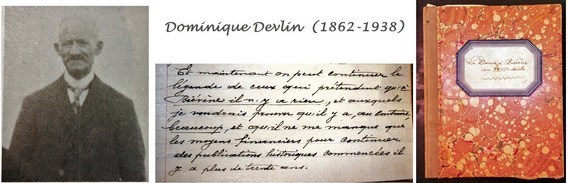 Dominique Devlin (1862-1938)
Et maintenant on peut continuer la
légende de ceux qui prétendent qu'à
Bièvène il n'y a rien, et auxquels
je voudrais prouver qu'il y a, au contraire,
beaucoup, et qu'il ne me manque que
les moyens financiers pour continuer
des publications historiques commencées il
y a plus de trente ans.